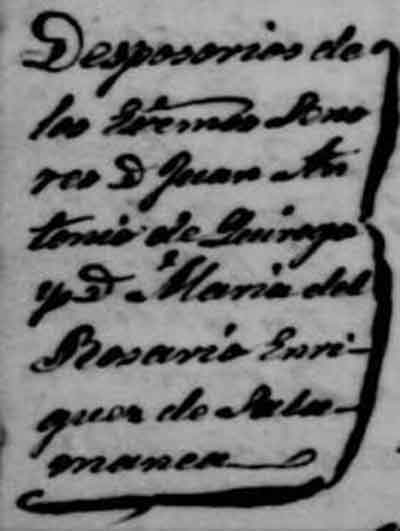 Desposorios de
los Exẽmos Seno
res D Juan An
tonio de Quiroga
y D.ª Maria del
Rosario Enri-
quez de Sala-
manca